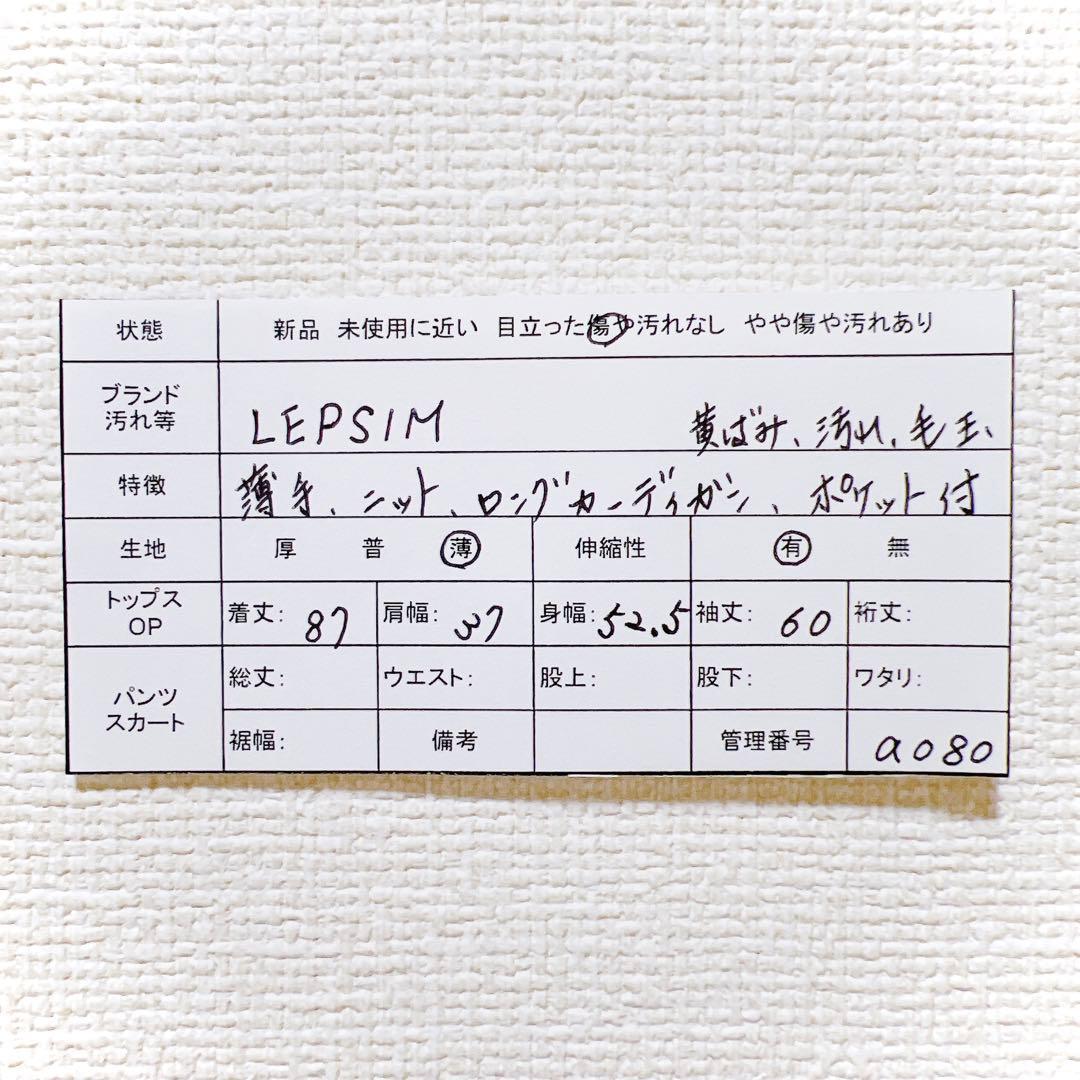 状態 新品 未使用に近い 目立った傷や汚れなし やや傷や汚れあり
ブランド
汚れ等 LEPSIM 黄ばみ、汚れ、毛玉、
特徴 薄手、ニット、ロングカーディガン、ポケット付
生地 厚 普 薄 伸縮性 有 無
トップス
OP 着丈: 87 肩幅: 37 身幅: 52.5 袖丈: 60 裄丈:
パンツ
スカート 総丈: ウエスト: 股上: 股下: ワタリ:
裾幅: 備考 管理番号 a080